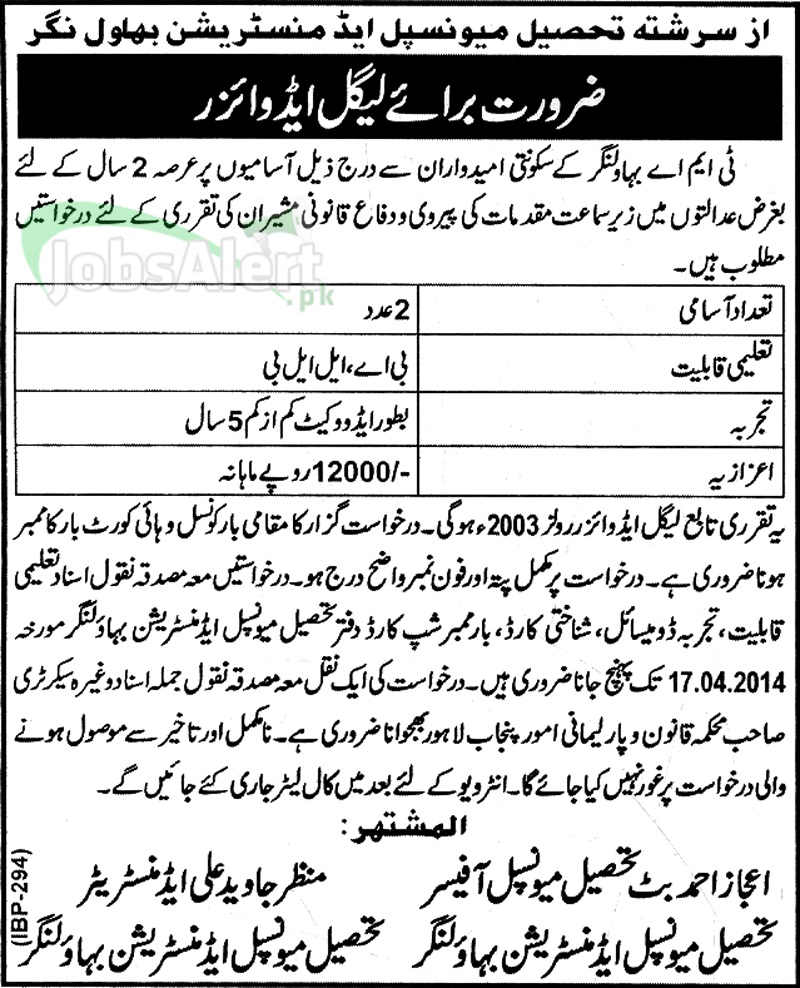 از سرشتہ تحصیل میونسپل ایڈمنسٹریشن بھاول نگر
ضرورت برائے لیگل ایڈوائزر
ٹی ایم اے بہاولنگر کے سکونتی امیدواران سے درج ذیل آسامیوں پر عرصہ 2 سال کے لئے
بغرض عدالتوں میں زیر سماعت مقدمات کی پیروی و دفاع قانونی مشیران کی تقرری کے لئے درخواستیں
مطلوب ہیں۔
JobsAlert.pk
تعداد آسامی 2 عدد
تعلیمی قابلیت بی اے، ایل ایل بی
تجربہ بطور ایڈووکیٹ کم از کم 5 سال
اعزازیہ 12000/- روپے ماہانہ
یہ تقرری تابع لیگل ایڈوائزر رولز 2003ء ہوگی۔ درخواست گزار کا مقامی بار کونسل و ہائی کورٹ بار کا ممبر
ہونا ضروری ہے۔ درخواست پر مکمل پتہ اور فون نمبر واضح درج ہو۔ درخواستیں معہ مصدقہ نقول اسناد تعلیمی
قابلیت، تجربہ ڈومیسائل، شناختی کارڈ، بار ممبر شپ کارڈ دفتر تحصیل میونسپل ایڈمنسٹریشن بہاولنگر مورخہ
17.04.2014 تک پہنچ جانا ضروری ہیں۔ درخواست کی ایک نقل معہ مصدقہ نقول جملہ اسناد وغیرہ سیکرٹری
صاحب محکمہ قانون و پارلیمانی امور پنجاب لاہور بھجوانا ضروری ہے۔ نامکمل اور تاخیر سے موصول ہونے
والی درخواست پر غور نہیں کیا جائے گا۔ انٹرویو کے لئے بعد میں کال لیٹر جاری کئے جائیں گے۔
المشتہر:
اعجاز احمد بٹ تحصیل میونسپل آفیسر
تحصیل میونسپل ایڈمنسٹریشن بہاولنگر
منظر جاوید علی ایڈمنسٹریٹر
تحصیل میونسپل ایڈمنسٹریشن بہاولنگر
(IBP-294)